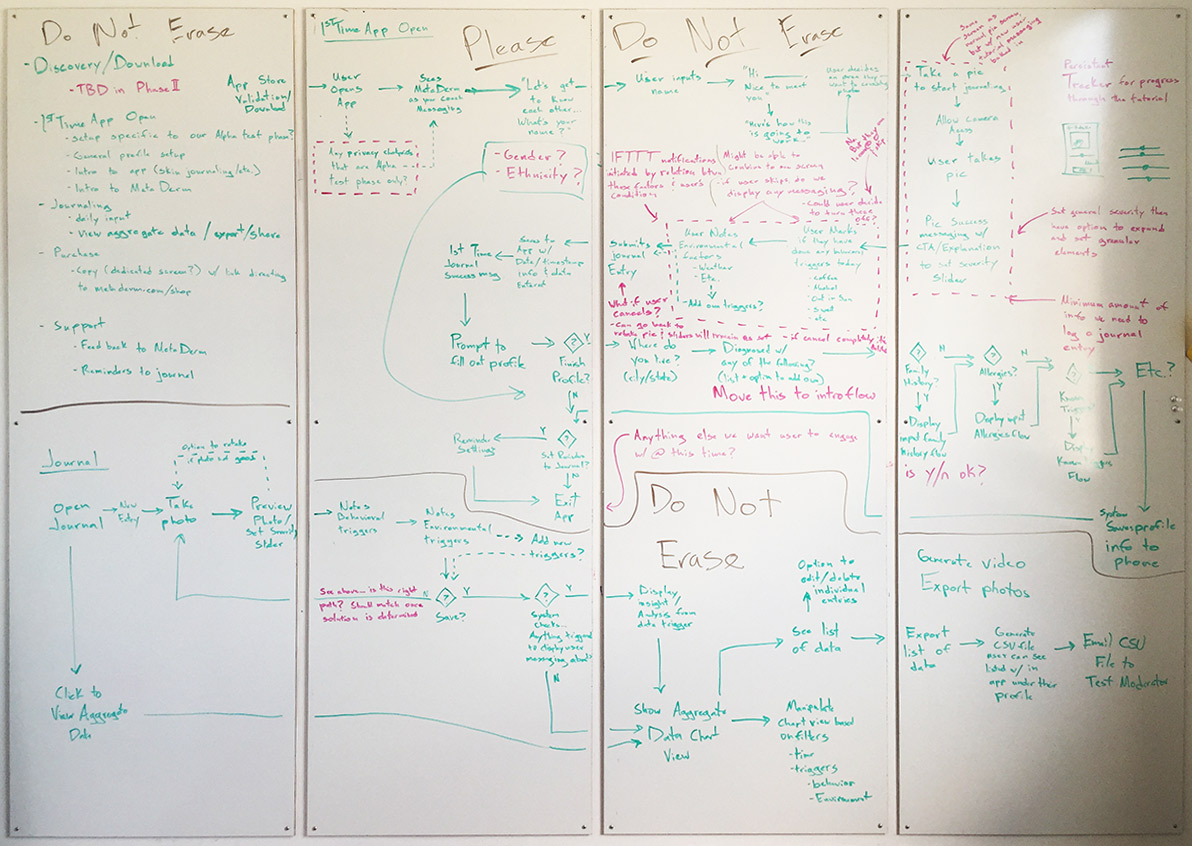 Do Not Erase
- Discovery/Download
- TBD in Phase II
App Store
Validation/
Download
- 1st Time App Open
- setup specific to our Alpha test phase?
- General profile setup
- Intro to app (skin journaling/etc.)
- Intro to MetaDerm
- Journaling
- daily input
- view aggregate data / export/share
- Purchase
- Copy (dedicated screen?) w/ link directing
to metaderm.com/shop
- Support
- Feed back to MetaDerm
- Reminders to journal
Journal
Option to retake
if photo not good
Open
Journal
New
Entry
Take
photo
Preview
Photo/
Set
Slider
Click to
View Aggregate
Data
1st Time App Open
Please
User
Opens
App
Sees
MetaDerm
as you Coach
Messaging
"Let's get
to know
each other...
What's your
name?"
Any privacy
that are Alpha
test phase only?
- Gender?
- Ethnicity?
1st Time
Journal
Success msg
App w/
Date/timestamp
info & data
Entered
Prompt to
fill out profile
?
Y
Finish
Profile?
N
Reminder
Settings
Y
?
Set Reminder
to Journal?
N
Exit
App
Notes
Behavioral
triggers
Notes
Environmental
triggers
Add new
triggers?
See above... is this right
path? Should match once
solution is determined
N
?
Y
Save?
?
Y
System
checks...
Anything triggered
to display user
messaging about?
N
Do Not Erase
User inputs
name
"Hi
Nice to meet
you"
"Here's how this
is going to
work."
User decides
an area they
want to
photo
IFTTT notifications
initiated by relation btwn
these factors & user's
condition
Might be able to
combine to one screen
- if user skips do we
display any messaging?
- Could user decide
to turn these
off?
Submits
journal
Entry
User Notes
Environmental
factors
- Weather
- Etc.
- Add own triggers?
User Marks
if they have
done any behavioral
triggers today
- coffee
- Alcohol
- Out in Sun
- Sweat
- etc
What if user
cancels?
- Can go back to
retake pic & sliders will remain as set - if cancel completely
Where do
you live?
(city/state)
Diagnosed w/
any of the following?
(list + option to add own)
Move this to intro flow
Anything else we want user to engage
w/ @ this time?
Do Not
Erase
Display
insight/
Analysis from
data trigger
Option to
edit/delete
individual
entries
See list
of data
Show Aggregate
Data Chart
View
Manipulate
Chart view based
on filters
- time
- triggers
- behavior
- Environment
Same
screen as
normal pic screen,
but w/ new user
tutorial messaging
baked in
Take a pic
to start journaling
Allow Camera
Access
User takes
pic
Pic Success
messaging w/
CTA/Explanation
to set severity
Slider
Persistent
Tracker for progress
through the tutorial
Set general security then
have option to expand
and set granular
elements
Minimum amount of
info we need to
log a journal
entry
?
N
Family
History?
Y
Display
input family
history flow
?
N
Allergies?
Y
Display input
Allergies flow
?
Known
Triggers
Y
Display
Known Triggers
Flow
Etc.?
is y/n ok?
System
Saves profile
info to
phone
Generate video
Export photos
Export
list of
data
Generate
CSV file
user can see
listed w/in
app under their
profile
Email CSV
File to
Test Moderator